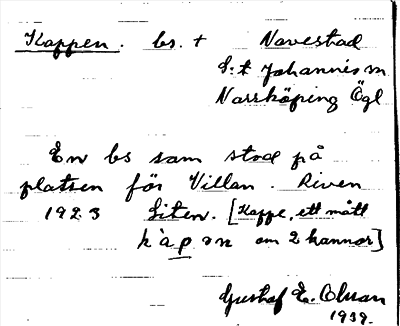 Kappen. bs. † Navestad
S:t Johannis sn
Norrköping Ögl
En bs som stod på
platsen för Villan. Riven
1923 Liten. [Kappe, ett mått
kàpən om 2 kannor]
Gustaf E. Olsson
1939.